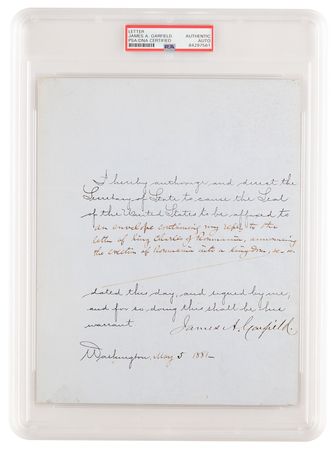 LETTER
JAMES A. GARFIELD
PSA/DNA CERTIFIED
AUTHENTIC
AUTO
PSA
84297561
I hereby authorize and direct the
Secretary of State to cause the Seal
of the United States to be affixed to
an envelope containing my reply to the
letter of King Charles of Roumania, announcing
the erection of Roumania into a kingdom,
dated this day, and signed by me;
and for so doing this shall be his
warrant.
James A. Garfield.
Washington, May 5 1881